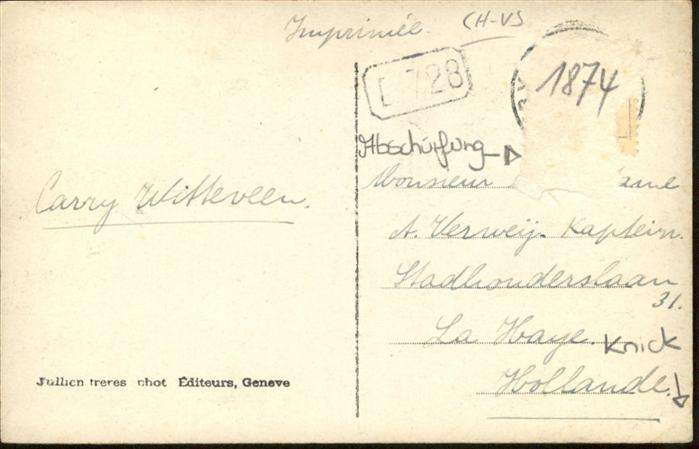 Imprimée. CH-VS
E 728
1874
Abschürfung
Carry Witteveen.
Monsieur
A. Verweij. Kaptein.
Stadhouderslaan
31.
La Haye.
Knick
Hollande.
Jullien freres phot Éditeurs, Geneve